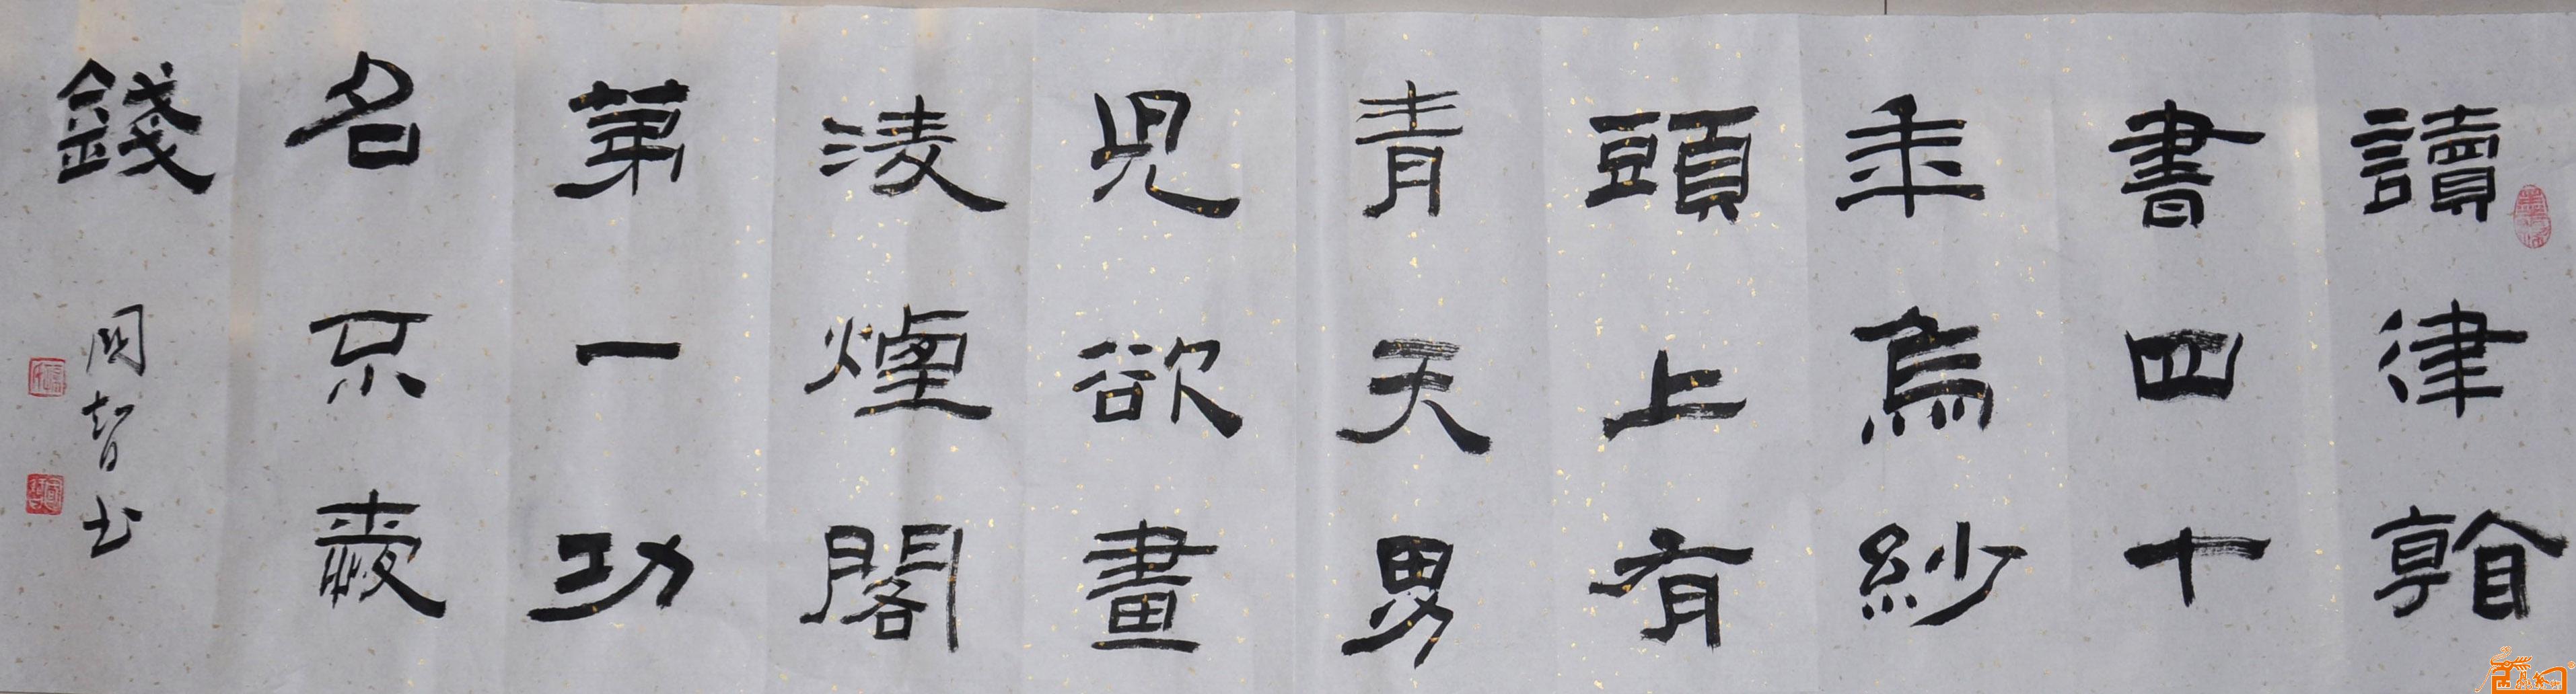 讀律看
書四十
年烏紗
頭上有
青天男
兒欲畫
淩煙閣
第一功
名不愛
錢
周智书